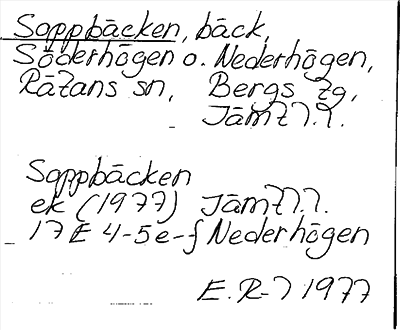 Soppbäcken, bäck,
Söderhögen o. Nederhögen,
Rätans sn, Bergs tg,
Jämtl.l.
Soppbäcken
ek (1977) Jämtl.l.
17E 4-5e-f Nederhögen
E.R-l 1977